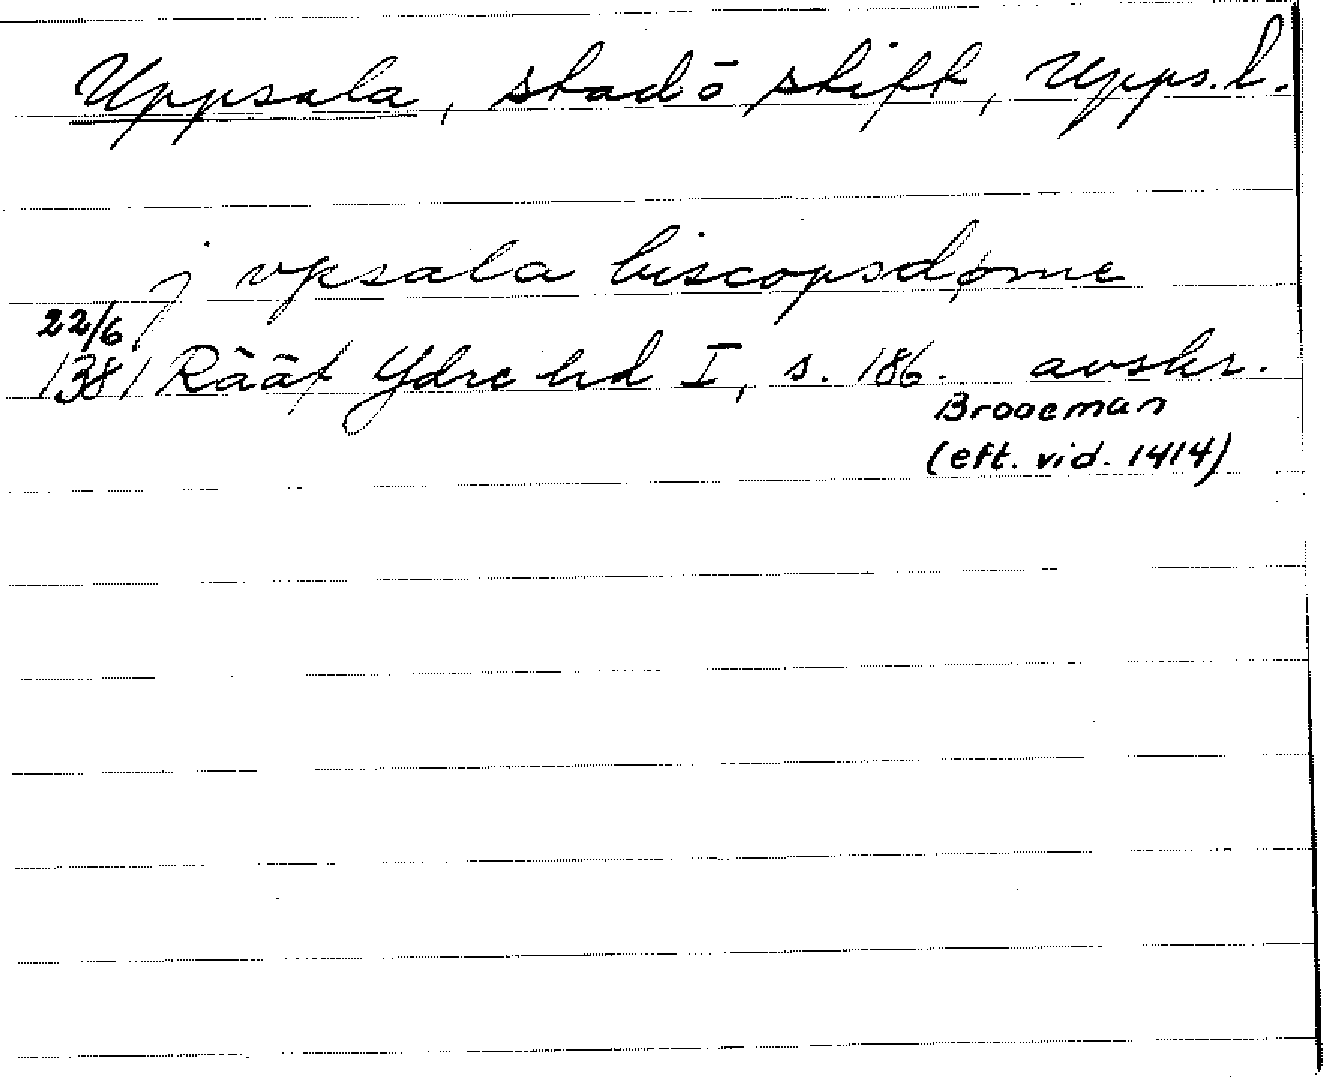 Uppsala, stad o stift, Upps. l.
j vpsala biscopsdøme
22/6
1381 Rääf Ydre hd I, s. 186. avskr.
Brooeman
(eft. vid. 1414)